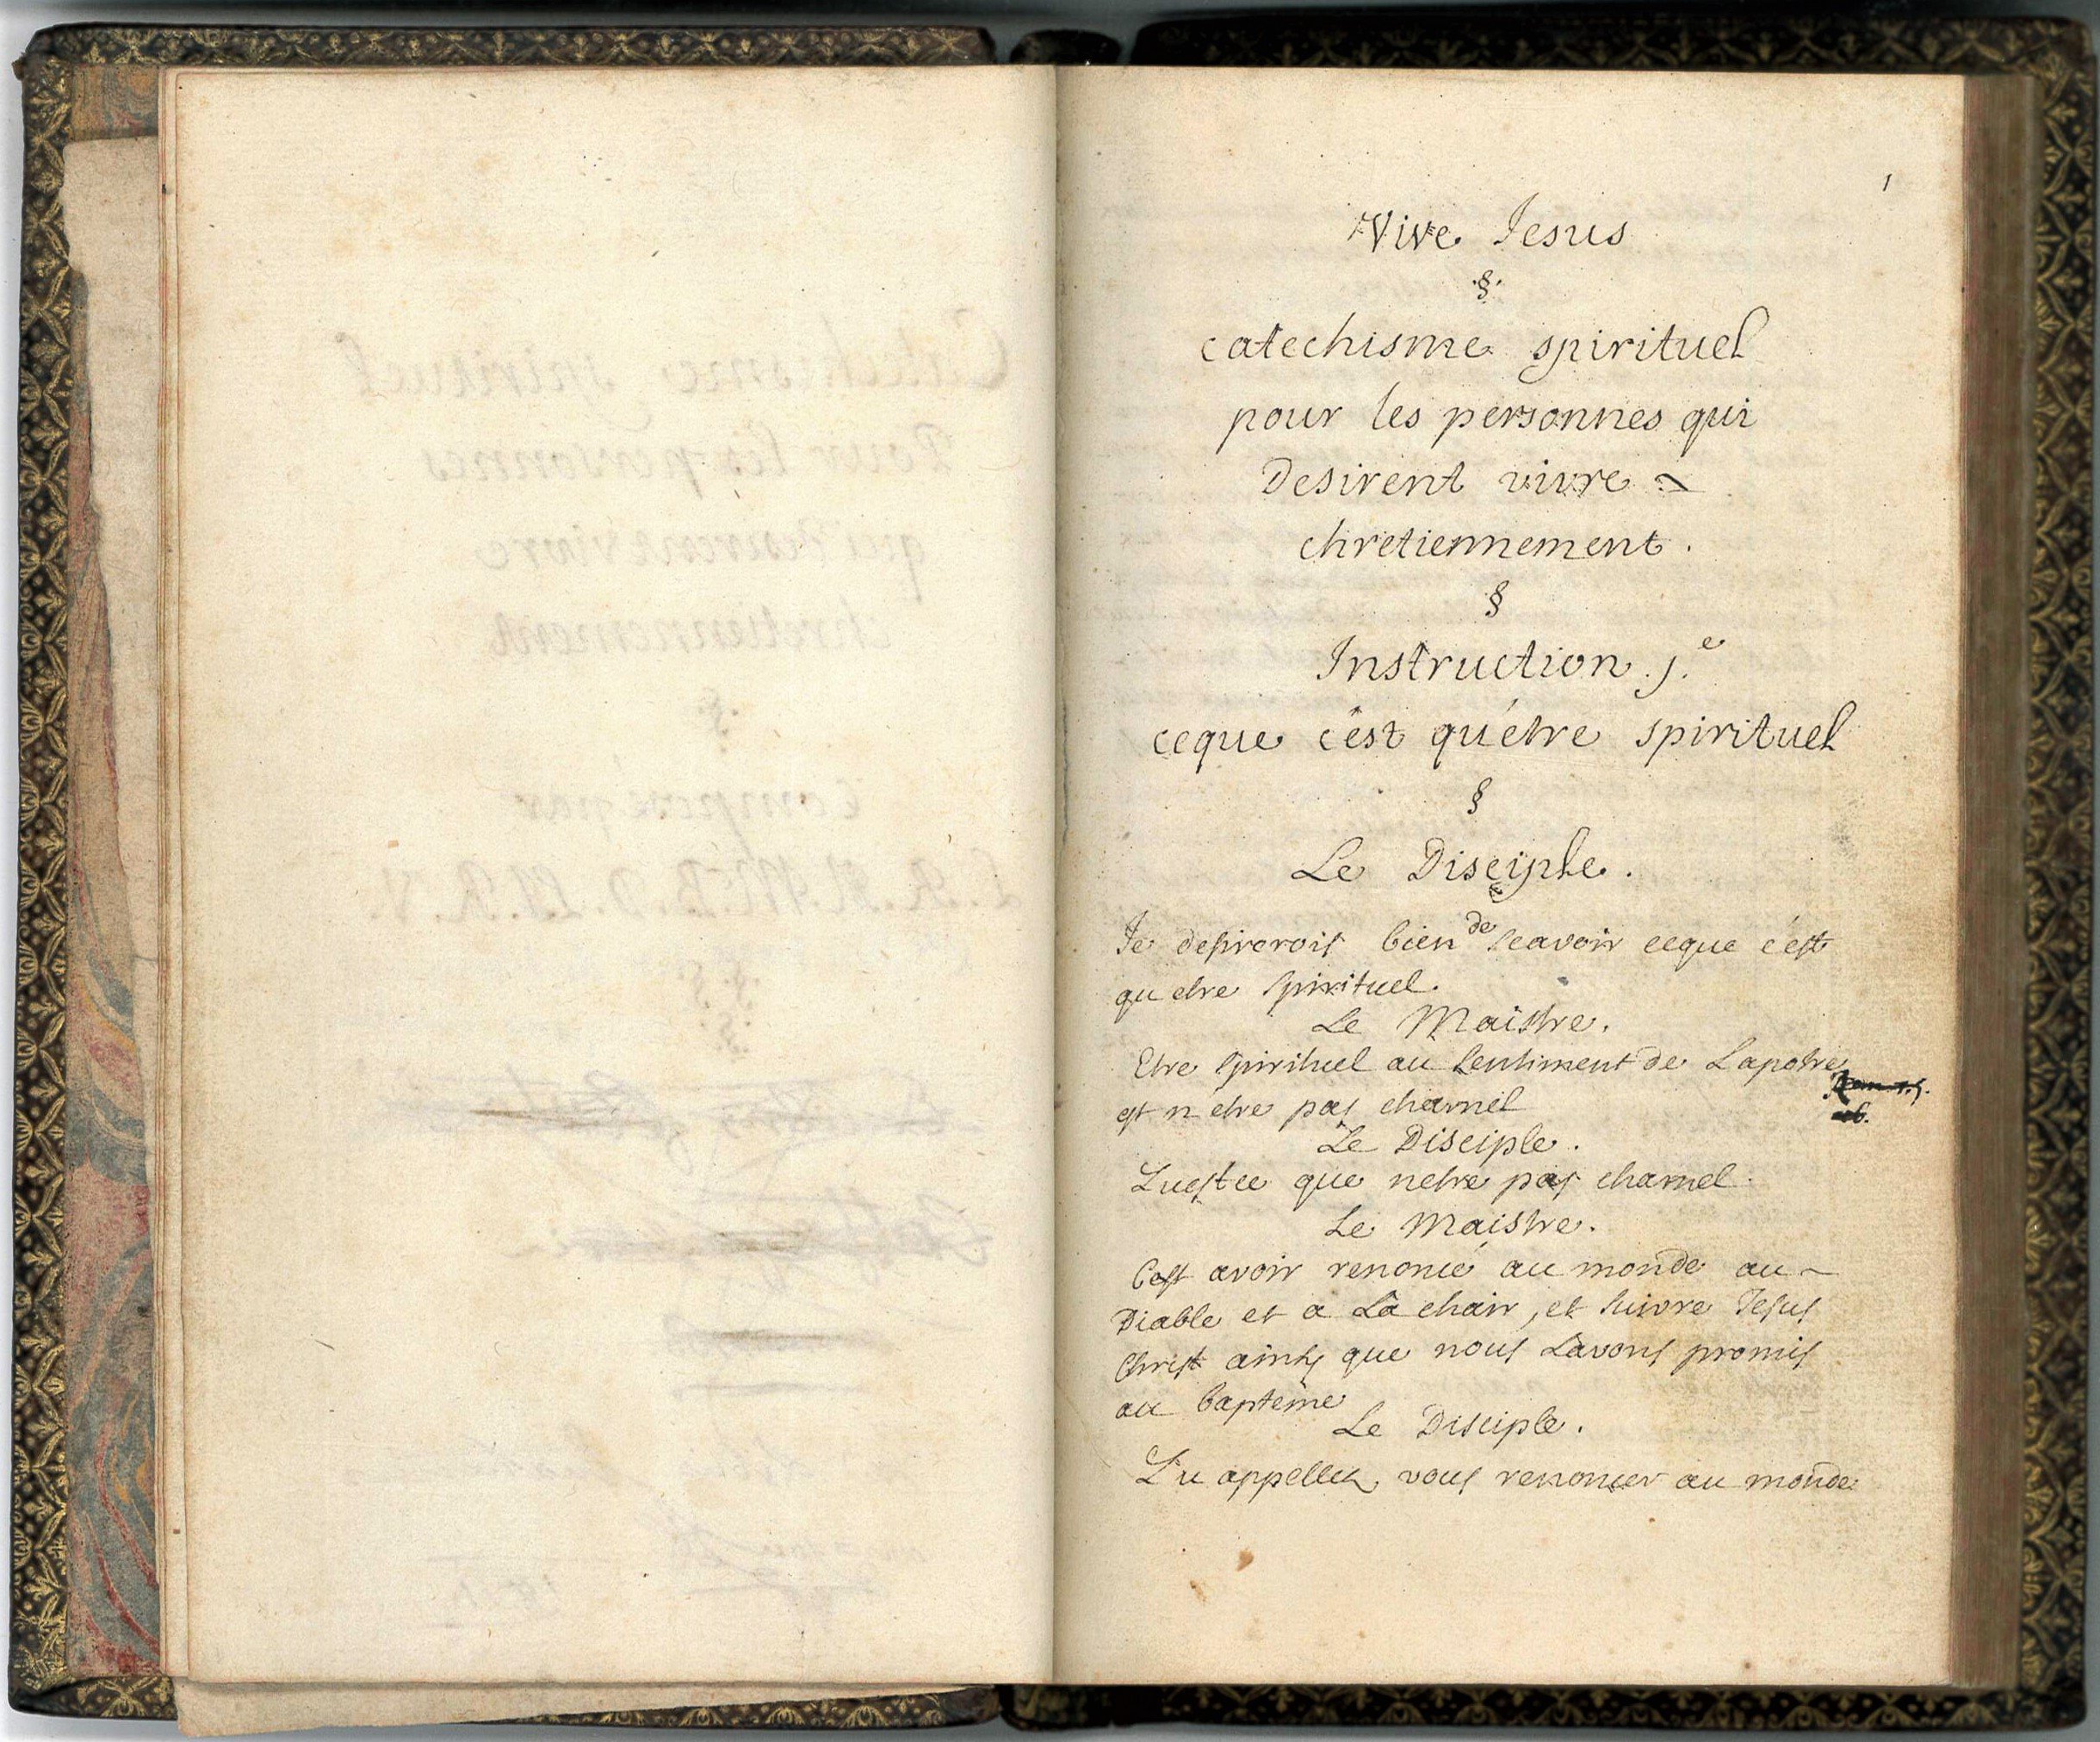 Catechisme spirituel
Pour les personnes
qui desirent vivre
chretiennement
§
composé par
§ §
§
1
Vive Jesus
§
catechisme spirituel
pour les personnes qui
Desirent vivre ~
chretiennement.
§
Instruction j.e
ceque c'est qu'étre spirituel
§
Le Disciple.
Je desirerois bien de scavoir ceque c'est
qu etre spirituel.
Le Maistre.
Etre spirituel au sentiment de Lapotre
est n'etre pas charnel
Le Disciple.
Quest ce que netre pas charnel.
Le Maistre.
C'est avoir renoncé au monde au ~
Diable et a La chair, et suivre Jesus
Christ ainsy que nous Lavons promis
au baptême
Le Disciple.
Qu appellez vous renoncer au monde